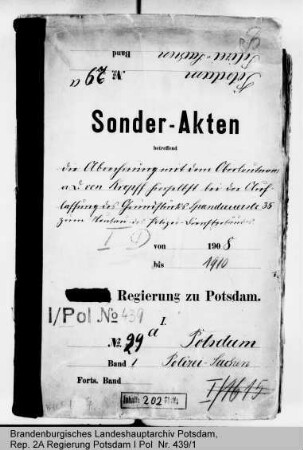 Potsdam
Polizei-Sachen
№ 29a
Band
Sonder-Akten
betreffend
die Abrechnung mit dem Oberleutnant
a. D. von
lassung des Grundstücks Spandauerstr. 35
zum Neubau des Polizei-Dienstgebäudes
I D von 1908
bis 1910
Regierung zu Potsdam.
I/Pol № 439
I.
№ 29a Potsdam
Band 1 Polizei-Sachen
Forts. Band
I/1615
Inhalt: 202 Bl.
Brandenburgisches Landeshauptarchiv Potsdam,
Rep. 2A Regierung Potsdam I Pol Nr. 439/1